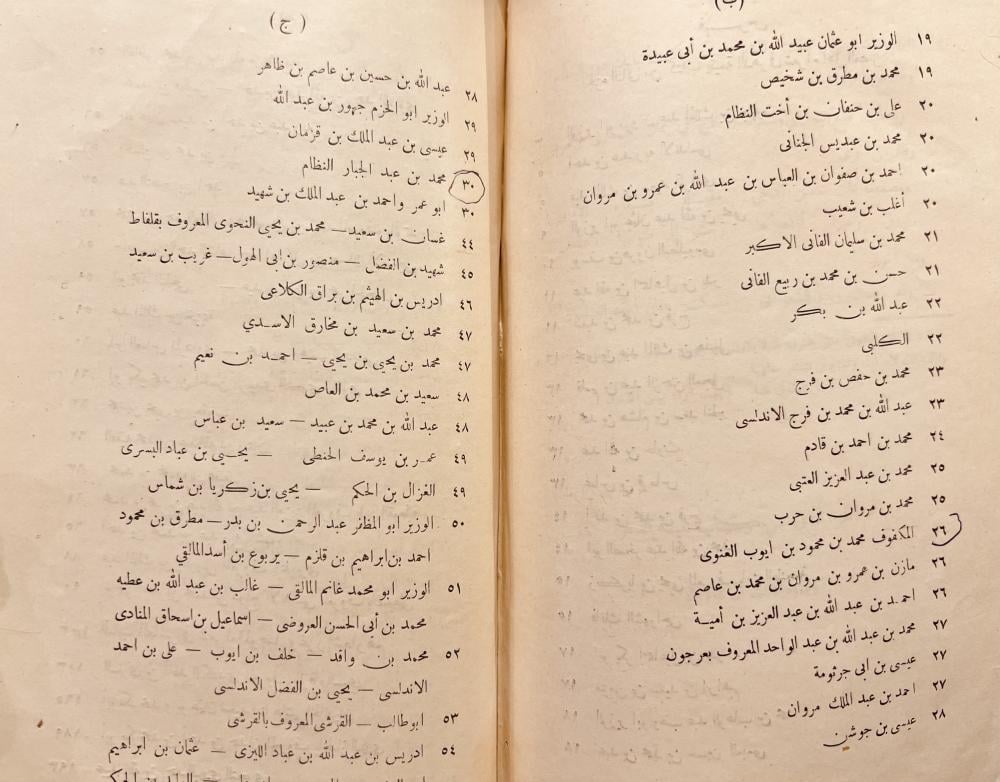 (ب)
١٩ الوزير ابو عثمان عبيد الله بن محمد بن أبي عبيدة
١٩ محمد بن مطرق بن شخيص
٢٠ على بن حنفان بن أخت النظام
٢٠ محمد بن عبديس الجنانى
٢٠ احمد بن صفوان بن العباس بن عبد الله بن عمرو بن مروان
٢٠ أغلب بن شعيب
٢١ محمد بن سليمان الفانى الاكبر
٢١ حسن بن محمد بن ربيع الفانى
٢٢ عبد الله بن بكر
٢٢ الكلبى
٢٣ محمد بن حفص بن فرج
٢٣ عبد الله بن محمد بن فرج الاندلسى
٢٤ محمد بن احمد بن قادم
٢٥ محمد بن عبد العزيز العتبى
٢٥ محمد بن مروان بن حرب
٢٦ المكفوف محمد بن محمود بن ايوب الغنوى
٢٦ مازن بن عمرو بن مروان بن محمد بن عاصم
٢٦ احمد بن عبد الله بن عبد العزيز بن أمية
٢٧ محمد بن عبد الله بن عبد الواحد المعروف بعرجون
٢٧ عيسى بن ابى جرثومة
٢٧ احمد بن عبد الملك مروان
٢٨ عيسى بن جوشن
(ج)
٢٨ عبد الله بن حسين بن عاصم بن ظاهر
٢٩ الوزير ابو الحزم جهور بن عبد الله
٢٩ عيسى بن عبد الملك بن قزمان
٣٠ محمد بن عبد الجبار النظام
٣٠ ابو عمر واحمد بن عبد الملك بن شهيد
٤٤ غسان بن سعيد — محمد بن يحيى النحوى المعروف بقلفاط
٤٥ شهيد بن الفضل — منصور بن ابى الهول — غريب بن سعيد
٤٦ ادريس بن الهيثم بن براق الكلاعى
٤٧ محمد بن سعيد بن مخارق الاسدي
٤٧ محمد بن يحيى بن يحيى — احمد بن نعيم
٤٨ سعيد بن محمد بن العاص
٤٨ عبد الله بن محمد بن عبيد — سعيد بن عباس
٤٩ عمر بن يوسف الحنطى — يحيى بن عباد البسرى
٤٩ الغزال بن الحكم — يحيى بن زكريا بن شماس
٥٠ الوزير ابو المظفر عبد الرحمن بن بدر — مطرق بن محمود
احمد بن ابراهيم بن قلزم — يربوع بن أسد المالقي
٥١ الوزير ابو محمد غانم المالقى — غالب بن عبد الله بن عطيه
محمد بن أبي الحسن العروضى — اسماعيل بن اسحاق المنادى
٥٢ محمد بن واقد — خلف بن ايوب — على بن احمد
الاندلسى — يحيى بن الفضل الاندلسى
٥٣ ابو طالب — القرشى المعروف بالقرشى
٥٤ ادريس بن عبد الله بن عباد الليزى — عثمان بن ابراهيم